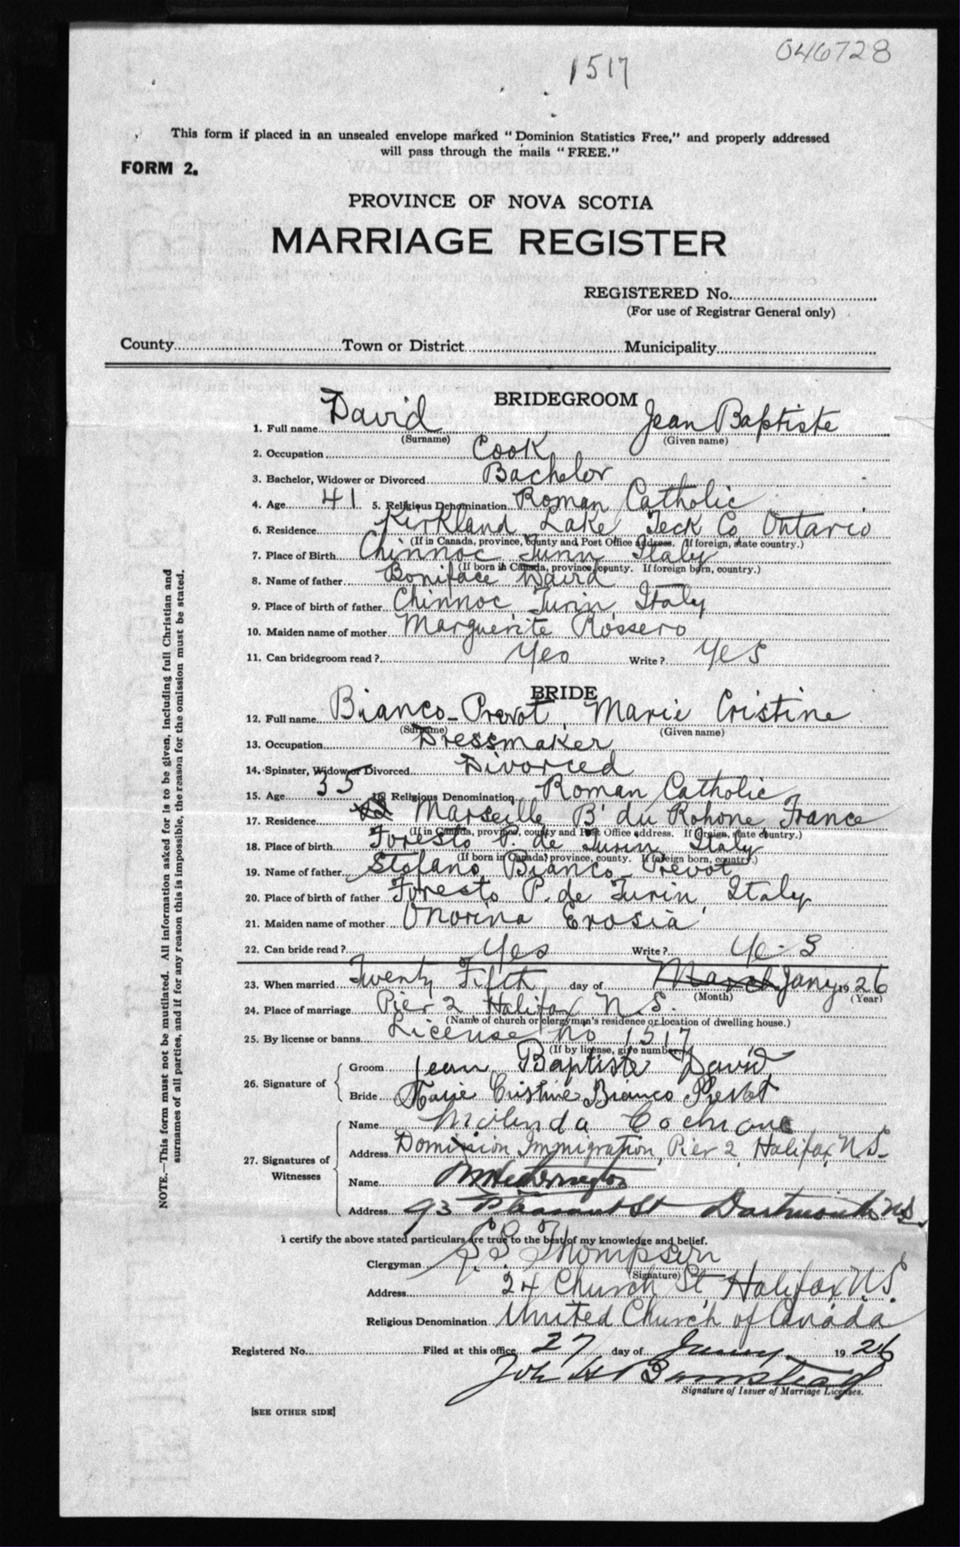 046728
1517
This form if placed in an unsealed envelope marked "Dominion Statistics Free," and properly addressed
will pass through the mails "FREE."
FORM 2.
PROVINCE OF NOVA SCOTIA
MARRIAGE REGISTER
REGISTERED No.
(For use of Registrar General only)
County Town or District Municipality
BRIDEGROOM
1. Full name David Jean Baptiste
(Surname) (Given name)
2. Occupation Cook
3. Bachelor, Widower or Divorced Bachelor
4. Age 41 5. Religious Denomination Roman Catholic
6. Residence Kirkland Lake Teck Co Ontario
(If in Canada, province, county and Post Office address. If foreign, state country.)
7. Place of Birth Chinnoc Turin Italy
(If born in Canada, province, county. If foreign born, country.)
8. Name of father Boniface David
9. Place of birth of father Chinnoc Turin Italy
10. Maiden name of mother Marguerite Rossero
11. Can bridegroom read? Yes Write? Yes
BRIDE
12. Full name Bianco-Prevot Marie Cristine
(Surname) (Given name)
13. Occupation Dressmaker
14. Spinster, Widow or Divorced Divorced
15. Age 35 16 Religious Denomination Roman Catholic
17. Residence Marseille B' du Rohone France
(If in Canada, province, county and Post Office address. If foreign, state country.)
18. Place of birth Foresto P. de Turin Italy
(If born in Canada, province, county. If foreign born, country.)
19. Name of father Stofano Bianco Prevot
20. Place of birth of father Foresto P. de Turin, Italy
21. Maiden name of mother Onorina Erosia
22. Can bride read? Yes Write? Yes
23. When married Twenty Fifth day of March Jany 1926
(Month) (Year)
24. Place of marriage Pier 2 Halifax N.S.
(Name of church or clergyman's residence or location of dwelling house.)
25. By license or banns License No 1517
(If by license, give number)
26. Signature of
Groom Jean Baptiste David
Bride Marie Cristine Bianco Prevot
27. Signatures of Witnesses
Name Cochrane
Address Dominion Immigration, Pier 2, Halifax, N.S.
Name
Address 93 Pleasant St Dartmouth N.S.
I certify the above stated particulars are true to the best of my knowledge and belief.
Clergyman Thompson
(Signature)
Address 24 Church St Halifax N.S.
Religious Denomination United Church of Canada
Registered No. Filed at this office 27 day of Jany 1926
Signature of Issuer of Marriage Licenses.
[SEE OTHER SIDE]
NOTE.—This form must not be mutilated. All information asked for is to be given, including full Christian and
surnames of all parties, and if for any reason this is impossible, the reason for the omission must be stated.